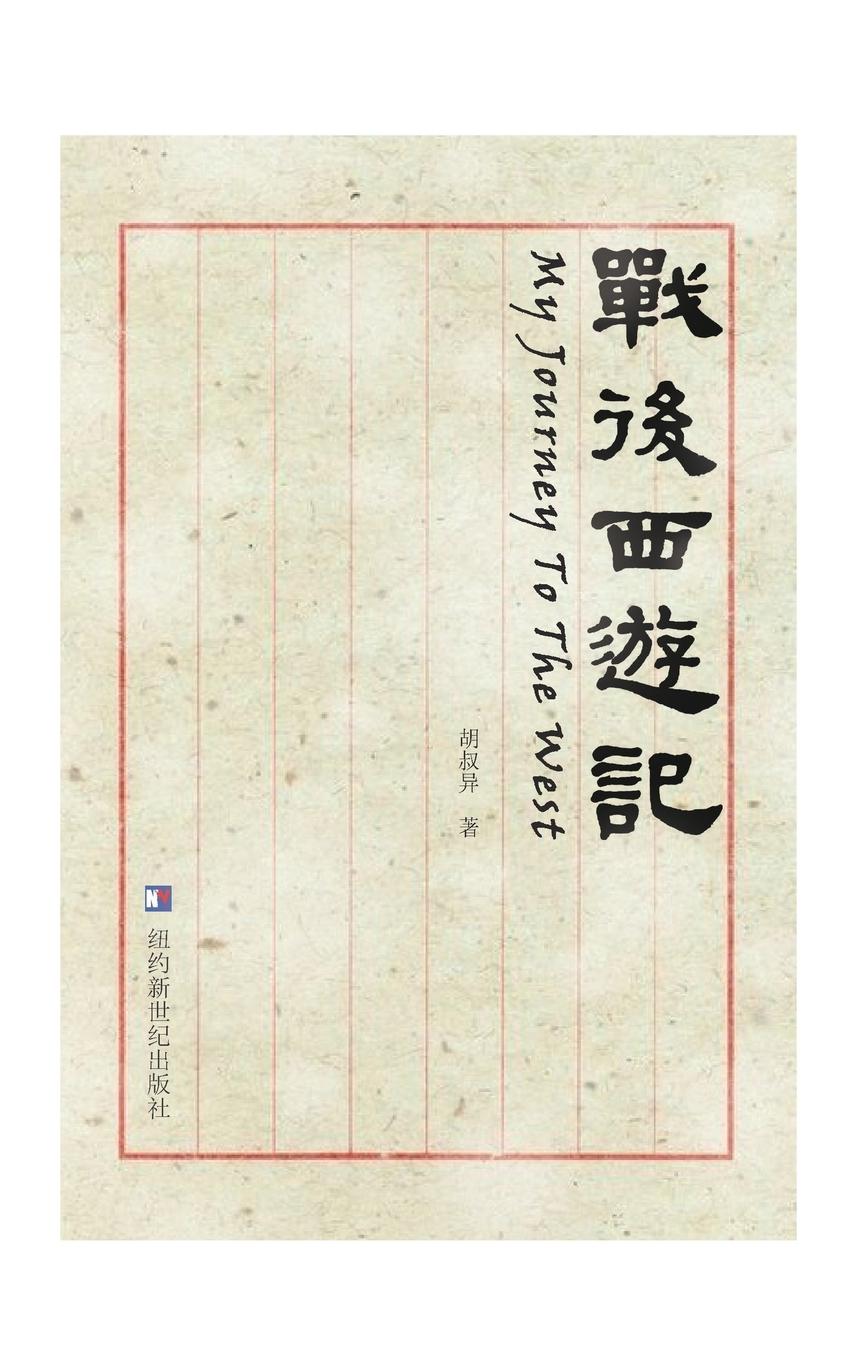 戰後西遊記
My Journey To The West
胡叔异 著
NY
纽约新世纪出版社